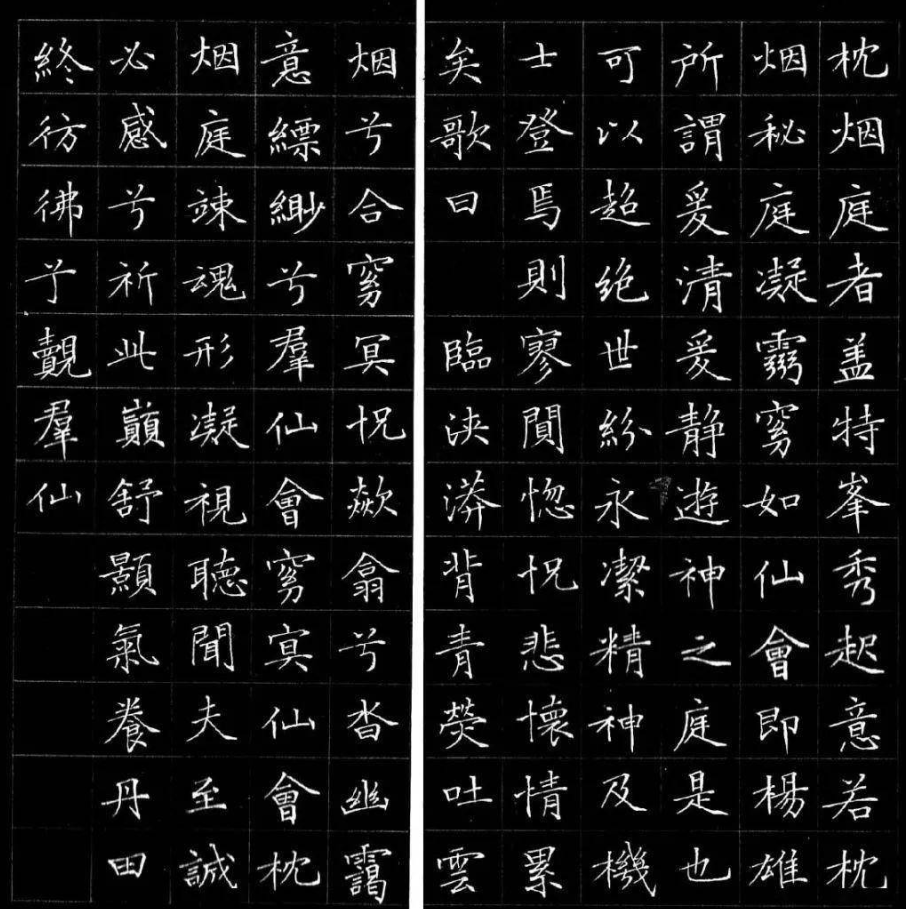 枕烟庭者盖特峯秀起意若枕
烟秘庭凝靄窅如仙會即楊雄
所謂爰清爰静遊神之庭是也
可以超绝世紛永潔精神及機
士登焉則寥閴惚怳悲懷情累
矣歌曰 臨泱漭背青熒吐雲
烟兮合窅冥怳欻翕兮沓幽靄
意縹緲兮羣仙會窅冥仙會枕
烟庭竦魂形凝視聴聞夫至誠
必感兮祈此巔舒顥氣養丹田
終彷彿兮觀羣仙